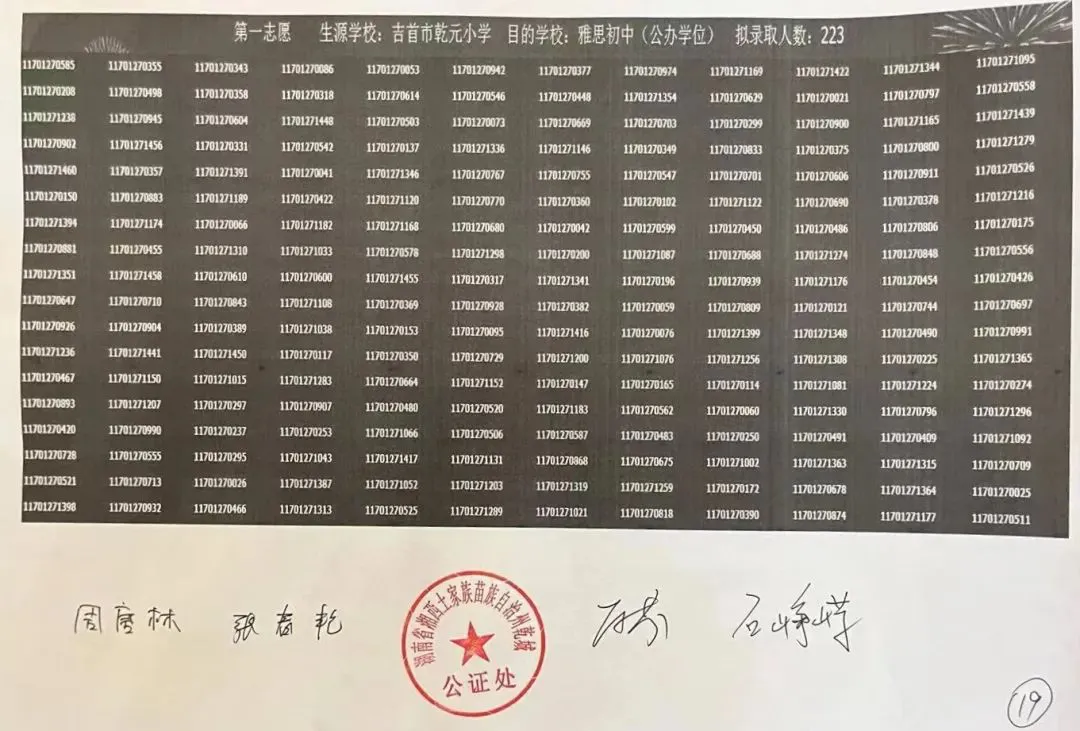 第一志愿 生源学校：吉首市乾元小学 目的学校：雅思初中（公办学位） 拟录取人数：223
11701270585 11701270355 11701270343 11701270086 11701270053 11701270942 11701270377 11701270974 11701271169 11701271422 11701271344 11701271095
11701270208 11701270498 11701270358 11701270318 11701270614 11701270546 11701270448 11701271354 11701270629 11701270021 11701270797 11701270558
11701271238 11701270945 11701270604 11701271448 11701270503 11701270073 11701270669 11701270703 11701270299 11701270900 11701271165 11701271439
11701270902 11701271456 11701270331 11701270542 11701270137 11701271336 11701271146 11701270349 11701270833 11701270375 11701270800 11701271279
11701271460 11701270357 11701271391 11701270041 11701271346 11701270767 11701270755 11701270547 11701270701 11701270606 11701270911 11701270526
11701270150 11701270883 11701271189 11701270422 11701271120 11701270770 11701270360 11701270102 11701271122 11701270690 11701270378 11701271216
11701271394 11701271174 11701270066 11701271182 11701271168 11701270680 11701270042 11701270599 11701270450 11701270486 11701270806 11701270175
11701270881 11701270455 11701271310 11701271033 11701270578 11701271298 11701270200 11701271087 11701270688 11701271274 11701270848 11701270556
11701271351 11701271458 11701270610 11701270600 11701271455 11701270317 11701271341 11701270196 11701270939 11701271176 11701270454 11701270426
11701270647 11701270710 11701270843 11701271108 11701270369 11701270928 11701270382 11701270059 11701270809 11701270121 11701270744 11701270697
11701270926 11701270904 11701270389 11701271038 11701270153 11701270095 11701271416 11701270076 11701271399 11701271348 11701270490 11701270991
11701271236 11701271441 11701271450 11701270117 11701270350 11701270729 11701271200 11701271076 11701271256 11701271308 11701270225 11701271365
11701270467 11701271150 11701271015 11701271283 11701270664 11701271152 11701270147 11701270165 11701270114 11701271081 11701271224 11701270274
11701270893 11701271207 11701270297 11701270907 11701270480 11701270520 11701271183 11701270562 11701270060 11701271330 11701270796 11701271296
11701270420 11701270990 11701270237 11701270253 11701271066 11701270506 11701270587 11701270483 11701270250 11701270491 11701270409 11701271092
11701270728 11701270555 11701270295 11701271043 11701271417 11701271131 11701270868 11701270675 11701271002 11701271363 11701271315 11701270709
11701270521 11701270713 11701270026 11701271387 11701271052 11701271203 11701271319 11701271259 11701270172 11701270678 11701271364 11701270025
11701271398 11701270932 11701270466 11701271313 11701270525 11701271289 11701271021 11701270818 11701270390 11701270874 11701271177 11701270511
湖南省湘西土家族苗族自治州乾城
公证处
周唐林 张春乾
19